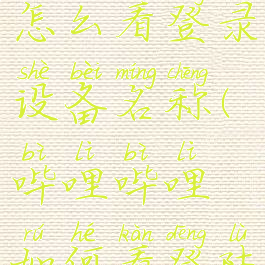 怎么看登录
shè bèi míng chēng
设备名称(
bì lī bì lī
哔哩哔哩
rú hé kàn dēng lù
如何看登陆